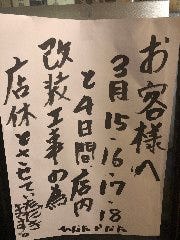 お客様へ
3月15、16、17、18
と4日間店内
改装工事の為
店休とさせて、